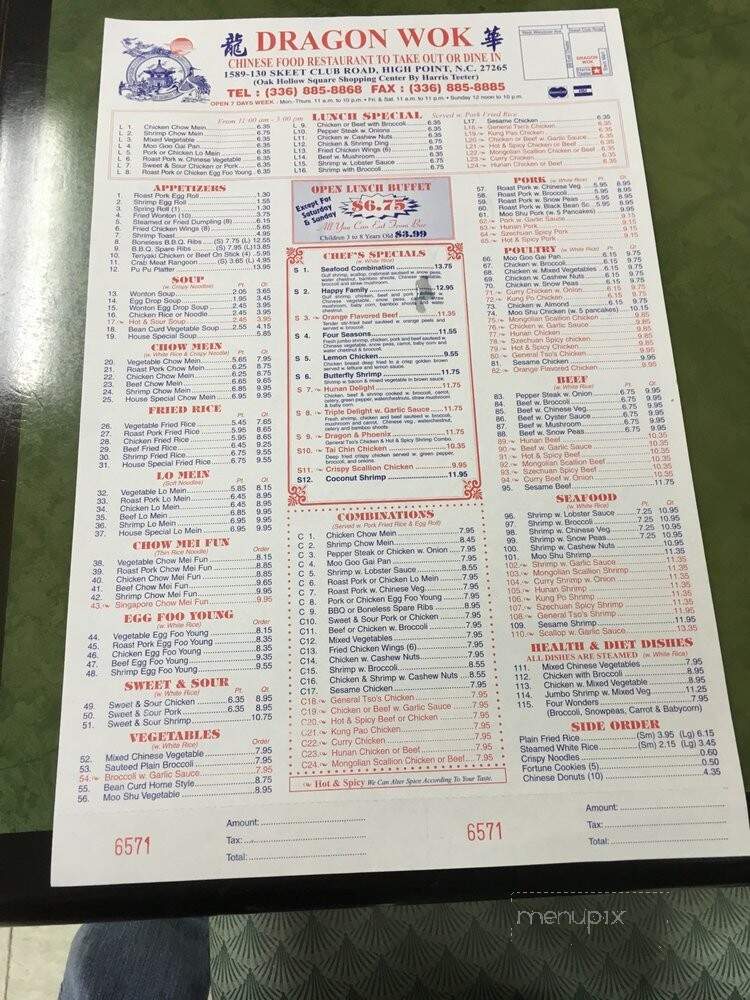 龍 DRAGON WOK 華
CHINESE FOOD RESTAURANT TO TAKE OUT OR DINE IN
1589-130 SKEET CLUB ROAD, HIGH POINT, N.C. 27265
(Oak Hollow Square Shopping Center By Harris Teeter)
TEL : (336) 885-8868 FAX : (336) 885-8885
OPEN 7 DAYS WEEK : Mon.-Thurs. 11 a.m. to 10 p.m. • Fri. & Sat. 11 a.m. to 11 p.m. • Sunday 12 noon to 10 p.m.
DRAGON WOK
LUNCH SPECIAL
From 11:00 am - 3:00 pm
Served w. Pork Fried Rice
L 1. Chicken Chow Mein 6.35
L 2. Shrimp Chow Mein 6.75
L 3. Mixed Vegetable 6.35
L 4. Moo Goo Gai Pan 6.35
L 5. Pork or Chicken Lo Mein 6.35
L 6. Roast Pork w. Chinese Vegetable 6.35
L 7. Sweet & Sour Chicken or Pork 6.35
L 8. Roast Pork or Chicken Egg Foo Young 6.35
L 9. Chicken or Beef with Broccoli 6.35
L10. Pepper Steak w. Onions 6.35
L11. Chicken w. Cashew Nuts 6.35
L12. Chicken & Shrimp Ding 6.75
L13. Fried Chicken Wings (6) 6.35
L14. Beef w. Mushroom 6.35
L15. Shrimp w. Lobster Sauce 6.75
L16. Shrimp with Broccoli 6.75
L17. Sesame Chicken 6.35
L18. General Tso's Chicken 6.35
L19. Kung Pao Chicken 6.35
L20. Chicken or Beef w. Garlic Sauce 6.35
L21. Hot & Spicy Beef or Chicken 6.35
L22. Mongolian Scallion Chicken or Beef 6.35
L23. Curry Chicken 6.35
L24. Hunan Chicken or Beef 6.35
APPETIZERS
1. Roast Pork Egg Roll 1.30
2. Shrimp Egg Roll 1.55
3. Spring Roll (1) 1.30
4. Fried Wonton (10) 3.75
5. Steamed or Fried Dumpling (8) 6.15
6. Fried Chicken Wings (6) 5.65
7. Shrimp Toast 4.95
8. Boneless B.B.Q. Ribs (S) 7.75 (L) 12.55
9. B.B.Q. Spare Ribs (S) 7.95 (L) 13.85
10. Teriyaki Chicken or Beef On Stick (4) 5.95
11. Crab Meat Rangoon (S) 3.65 (L) 4.95
12. Pu Pu Platter 13.95
SOUP
(w. Crispy Noodles) Pt. Qt.
13. Wonton Soup 2.05 3.65
14. Egg Drop Soup 1.95 3.45
15. Wonton Egg Drop Soup 2.45 3.95
16. Chicken Rice or Noodle 2.45 3.95
17. Hot & Sour Soup 2.45 3.95
18. Bean Curd Vegetable Soup 2.55 4.15
19. House Special Soup 5.85
CHOW MEIN
(w. White Rice & Crispy Noodle) Pt. Qt.
20. Vegetable Chow Mein 5.65 7.95
21. Roast Pork Chow Mein 6.25 8.75
22. Chicken Chow Mein 6.25 8.75
23. Beef Chow Mein 6.65 9.65
24. Shrimp Chow Mein 6.85 9.95
25. House Special Chow Mein 6.95 9.95
FRIED RICE
Pt. Qt.
26. Vegetable Fried Rice 5.45 7.65
27. Roast Pork Fried Rice 5.95 8.65
28. Chicken Fried Rice 5.95 8.65
29. Beef Fried Rice 6.45 9.25
30. Shrimp Fried Rice 6.75 9.55
31. House Special Fried Rice 6.75 9.55
LO MEIN
(Soft Noodles) Pt. Qt.
32. Vegetable Lo Mein 5.85 8.15
33. Roast Pork Lo Mein 6.45 8.95
34. Chicken Lo Mein 6.45 8.95
35. Beef Lo Mein 6.85 9.95
36. Shrimp Lo Mein 6.95 9.95
37. House Special Lo Mein 6.95 9.95
CHOW MEI FUN
(Thin Rice Noodle) Order
38. Vegetable Chow Mei Fun 8.15
39. Roast Pork Chow Mei Fun 8.85
40. Chicken Chow Mei Fun 8.85
41. Beef Chow Mei Fun 9.65
42. Shrimp Chow Mei Fun 9.95
43. Singapore Chow Mei Fun 9.95
EGG FOO YOUNG
(w. White Rice) Order
44. Vegetable Egg Foo Young 8.15
45. Roast Pork Egg Foo Young 8.35
46. Chicken Egg Foo Young 8.35
47. Beef Egg Foo Young 9.35
48. Shrimp Egg Foo Young 9.55
SWEET & SOUR
(w. White Rice) Pt. Qt.
49. Sweet & Sour Chicken 6.35 8.95
50. Sweet & Sour Pork 6.35 8.95
51. Sweet & Sour Shrimp 10.75
VEGETABLES
(w. White Rice) Order
52. Mixed Chinese Vegetable 7.95
53. Sauteed Plain Broccoli 7.95
54. Broccoli w. Garlic Sauce 7.95
55. Bean Curd Home Style 8.75
56. Moo Shu Vegetable 8.95
OPEN LUNCH BUFFET
Except For Saturday & Sunday
$6.75
All You Can Eat Food Bar
Children 3 to 8 Years Old $3.99
CHEF'S SPECIALS
(w. White Rice)
S 1. Seafood Combination 13.75
S 2. Happy Family 12.95
S 3. Orange Flavored Beef 11.35
Tender stir-fried beef sauteed w. orange peels and served w. broccoli
S 4. Four Seasons 11.55
Fresh jumbo shrimp, chicken, pork and beef sauteed w. Chinese vegetable, snow peas, carrot, baby corn and water chestnut & broccoli.
S 5. Lemon Chicken 9.55
Chicken breast deep fried to a crisp golden brown served w. lettuce and lemon sauce.
S 6. Butterfly Shrimp 11.75
Shrimp w. bacon & mixed vegetable in brown sauce.
S 7. Hunan Delight 11.75
Chicken, beef & shrimp cooked w. broccoli, carrot, celery, green pepper, waterchestnuts, straw mushrooms & baby corn.
S 8. Triple Delight w. Garlic Sauce 11.75
Fresh shrimp, chicken and beef sauteed w. broccoli, mushroom and carrot. Chinese veg., waterchestnut, celery and bamboo shoots
S 9. Dragon & Phoenix 11.75
General Tso's Chicken & Hot & Spicy Shrimp Combo.
S10. Tai Chin Chicken 10.35
Deep fried crispy chicken served w. green pepper, broccoli, and onions.
S11. Crispy Scallion Chicken 9.95
S12. Coconut Shrimp 11.95
COMBINATIONS
(Served w. Pork Fried Rice & Egg Roll)
C 1. Chicken Chow Mein 7.95
C 2. Shrimp Chow Mein 8.45
C 3. Pepper Steak or Chicken w. Onion 7.95
C 4. Moo Goo Gai Pan 7.95
C 5. Shrimp w. Lobster Sauce 8.55
C 6. Roast Pork or Chicken Lo Mein 7.95
C 7. Roast Pork w. Chinese Veg. 7.95
C 8. Pork or Chicken Egg Foo Young 7.95
C 9. BBQ or Boneless Spare Ribs 8.95
C10. Sweet & Sour Pork or Chicken 7.95
C11. Beef or Chicken w. Broccoli 7.95
C12. Mixed Vegetables 7.95
C13. Fried Chicken Wings (6) 7.95
C14. Chicken w. Cashew Nuts 7.95
C15. Shrimp w. Broccoli 8.55
C16. Chicken & Shrimp w. Cashew Nuts 8.55
C17. Sesame Chicken 7.95
C18. General Tso's Chicken 7.95
C19. Chicken or Beef w. Garlic Sauce 7.95
C20. Hot & Spicy Beef or Chicken 7.95
C21. Kung Pao Chicken 7.95
C22. Curry Chicken 7.95
C23. Hunan Chicken or Beef 7.95
C24. Mongolian Scallion Chicken or Beef 7.95
Hot & Spicy We Can Alter Spice According To Your Taste.
PORK (w. White Rice) Pt. Qt.
57. Roast Pork w. Chinese Veg. 5.95 8.95
58. Roast Pork w. Broccoli 5.95 8.95
59. Roast Pork w. Snow Peas 5.95 8.95
60. Roast Pork w. Black Bean Sc. 5.95 8.95
61. Moo Shu Pork (w. 5 Pancakes) 9.95
62. Pork w. Garlic Sauce 9.15
63. Hunan Pork 9.15
64. Szechuan Spicy Pork 9.15
65. Hot & Spicy Pork 9.15
POULTRY (w. White Rice) Pt. Qt.
66. Moo Goo Gai Pan 6.15 9.75
67. Chicken w. Broccoli 6.15 9.75
68. Chicken w. Mixed Vegetables 6.15 9.75
69. Chicken w. Cashew Nuts 6.15 9.75
70. Chicken w. Snow Peas 6.15 9.75
71. Curry Chicken w. Onion 6.15 9.75
72. Kung Po Chicken 6.15 9.75
73. Chicken w. Almond 6.15 9.75
74. Moo Shu Chicken (w. 5 pancakes) 10.15
75. Mongolian Scallion Chicken 9.85
76. Chicken w. Garlic Sauce 9.85
77. Hunan Chicken 9.85
78. Szechuan Spicy chicken 9.85
79. Hot & Spicy Chicken 9.85
80. General Tso's Chicken 9.85
81. Sesame Chicken 9.95
82. Orange Flavored Chicken 9.85
BEEF
(w. White Rice) Pt. Qt.
83. Pepper Steak w. Onion 6.75 9.95
84. Beef w. Broccoli 6.75 9.95
85. Beef w. Chinese Veg. 6.75 9.95
86. Beef w. Oyster Sauce 6.75 9.95
87. Beef w. Mushroom 6.75 9.95
88. Beef w. Snow Peas 6.75 9.95
89. Hunan Beef 10.35
90. Beef w. Garlic Sauce 10.35
91. Hot & Spicy Beef 10.35
92. Mongolian Scallion Beef 10.35
93. Szechuan Spicy Beef 10.35
94. Curry Beef w. Onion 10.35
95. Sesame Beef 11.75
SEAFOOD
(w. White Rice) Pt. Qt.
96. Shrimp w. Lobster Sauce 7.25 10.95
97. Shrimp w. Broccoli 7.25 10.95
98. Shrimp w. Chinese Veg. 7.25 10.95
99. Shrimp w. Snow Peas 7.25 10.95
100. Shrimp w. Cashew Nuts 10.95
101. Moo Shu Shrimp 11.35
102. Shrimp w. Garlic Sauce 11.35
103. Mongolian Scallion Shrimp 11.35
104. Curry Shrimp w. Onion 11.35
105. Hunan Shrimp 11.35
106. Kung Po Shrimp 11.35
107. Szechuan Spicy Shrimp 11.35
108. General Tso's Shrimp 11.35
109. Sesame Shrimp 11.95
110. Scallop w. Garlic Sauce 13.35
HEALTH & DIET DISHES
ALL DISHES ARE STEAMED (w. White Rice)
111. Mixed Chinese Vegetables 7.95
112. Chicken with Broccoli 8.95
113. Chicken w. Mixed Vegetable 8.95
114. Jumbo Shrimp w. Mixed Veg. 11.25
115. Four Wonders 7.95
(Broccoli, Snowpeas, Carrot & Babycorn)
SIDE ORDER
Plain Fried Rice (Sm) 3.95 (Lg) 6.15
Steamed White Rice (Sm) 2.15 (Lg) 3.45
Crispy Noodles 0.60
Fortune Cookies (5) 0.50
Chinese Donuts (10) 4.35
6571
Amount:
Tax:
Total:
6571
Amount:
Tax:
Total:
menupix